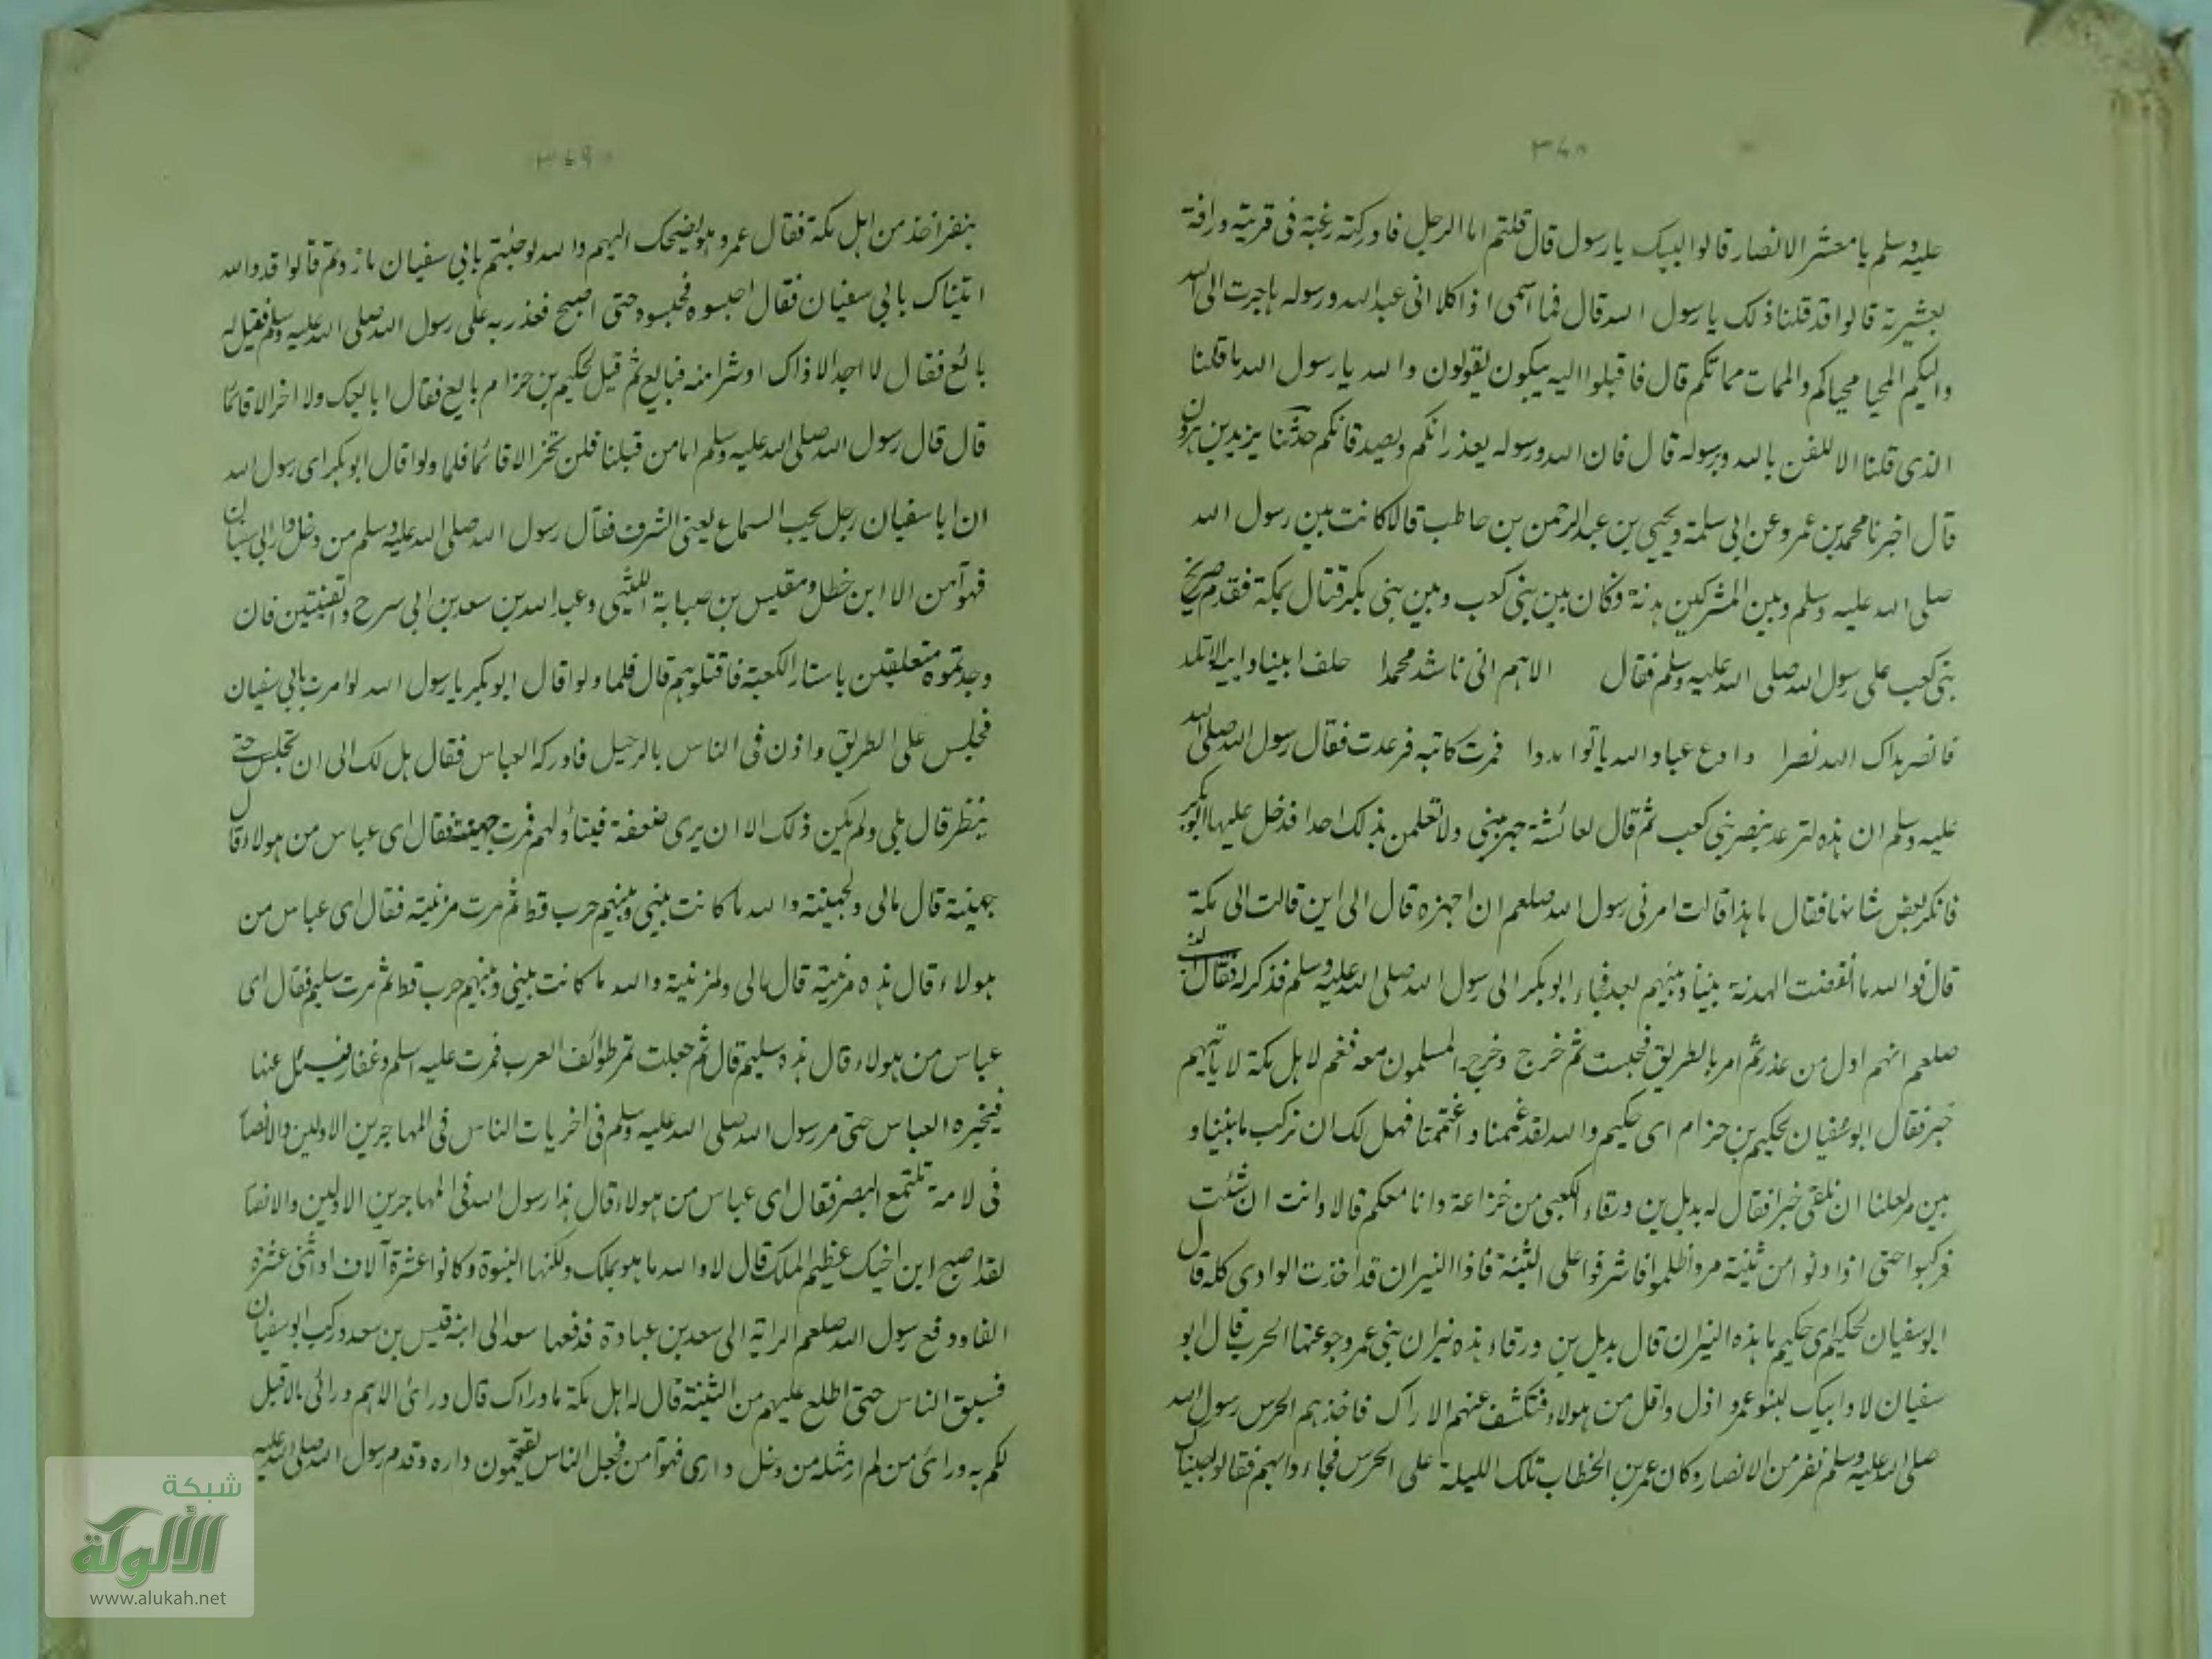 ٣٤٨
عليه وسلم يا معشر الانصار قالوا لبيك يا رسول قال قلتم اما الرجل فادركته رغبة فى قريته ورافة
بعشيرته قالوا قد قلنا ذلك يا رسول الله قال فما اسمى اذا كلا انى عبد الله ورسوله هاجرت الى الله
واليكم المحيا محياكم والممات مماتكم قال فاقبلوا اليه يبكون يقولون والله يا رسول الله ما قلنا
الذى قلنا الا للضن بالله وبرسوله قال فان الله ورسوله يعذرانكم ويصدقانكم حدثنا يزيد بن هرون
قال اخبرنا محمد بن عمرو عن ابى سلمة ويحيى بن عبد الرحمن بن حاطب قالا كانت بين رسول الله
صلى الله عليه وسلم وبين المشركين هدنة وكان بين بنى كعب وبين بنى بكر قتال بمكة فقدم صريخ
بنى كعب على رسول الله صلى الله عليه وسلم فقال الاهم انى ناشد محمدا حلف ابينا وابيه الاتلد
فانصر هداك الله نصرا وادع عباد الله ياتوا مددا فمرت كاتبه فرعدت فقال رسول الله صلى الله
عليه وسلم ان هذه لترعد بنصر بنى كعب ثم قال لعائشة جهزينى ولا تعلمن بذلك احدا فدخل عليها ابو بكر
فانكر بعض شانها فقال ما هذا قالت امرنى رسول الله صلعم ان اجهزه قال الى اين قالت الى مكة
قال فوالله ما انقضت الهدنة بيننا وبينهم بعد فجاء ابو بكر الى رسول الله صلى الله عليه وسلم فذكر له فقال
صلعم انهم اول من عذر ثم امر بالطريق فحبست ثم خرج وخرج المسلمون معه فغم لاهل مكة لا ياتيهم
خبر فقال ابو سفيان لحكيم بن حزام اى حكيم والله لقد غممنا واغتممنا فهل لك ان نركب ما بيننا و
بين مر لعلنا ان نلقى خبرا فقال له بديل بن ورقاء الكعبى من خزاعة وانا معكم قالا وانت ان شئت
فركبوا حتى اذا دنوا من ثنية مر واظلموا فاشرفوا على الثنية فاذا النيران قد اخذت الوادى كله قال
ابو سفيان لحكيم اى حكيم ما هذه النيران قال بديل بن ورقاء هذه نيران بنى عمرو جوعتها الحرب قال ابو
سفيان لا وابيك لبنو عمرو اذل واقل من هولاء فتكشف عنهم الاراك فاخذهم الحرس رسول الله
صلى الله عليه وسلم نفر من الانصار وكان عمر بن الخطاب تلك الليلة على الحرس فجاءوا بهم فقالوا
٣٤٩
بنفر اخذ من اهل مكة فقال عمر وهو يضحك اليهم والله لو جئتم بابى سفيان ما زدتم قالوا قد والله
اتيناك بابى سفيان فقال احبسوه فحبسوه حتى اصبح فغدر به على رسول الله صلى الله عليه وسلم فقيل له
بائع فقال لا اجد الا ذاك او شرا منه فبايع ثم قيل لحكيم بن حزام بايع فقال ابايعك ولا اخر الا قائما
قال قال رسول الله صلى الله عليه وسلم اما من قبلنا فلن تخر الا قائما فلما ولوا قال ابو بكر اى رسول الله
ان ابا سفيان رجل يحب السماع يعنى الشرف فقال رسول الله صلى الله عليه وسلم من دخل دار ابى سفيان
فهو آمن الا ابن خطل ومقيس بن صبابة الليثى وعبد الله بن سعد بن ابى سرح والقينتين فان
وجدتموه متعلقين باستار الكعبة فاقتلوهم قال فلما ولوا قال ابو بكر يا رسول الله لو امرت بابى سفيان
فجلس على الطريق واذن فى الناس بالرحيل فادركه العباس فقال هل لك الى ان تجلس حتى
ينظر قال بلى ولم يكن ذلك الا ان يرى ضعفة فيتناولهم فمرت جهينة فقال اى عباس من هولاء قال
جهينة قال مالى ولجهينة والله ما كانت بينى وبينهم حرب قط ثم مرت مزينة فقال اى عباس من
هولاء قال هذه مزينة قال مالى ولمزنية والله ما كانت بينى وبينهم حرب قط ثم مرت سليم فقال اى
عباس من هولاء قال هذه سليم قال ثم جعلت تمر طوائف العرب فمرت عليه اسلم وغفار فيسئل عنها
فيخبره العباس حتى مر رسول الله صلى الله عليه وسلم فى اخريات الناس فى المهاجرين الاولين والانصا
فى لامة تلتمع البصر فقال اى عباس من هولاء قال هذا رسول الله فى المهاجرين الاولين والانصا
لقد اصبح ابن اخيك عظيم الملك قال لا والله ما هو بملك ولكنها النبوة وكانوا عشرة آلاف او اثنى عشرة
الفا ودفع رسول الله صلعم الراية الى سعد بن عبادة فدفعها سعد الى ابنه قيس بن سعد وركب ابو سفيان
فسبق الناس حتى اطلع عليهم من الثنية قال له اهل مكة ما وراك قال ورائ الاهم ورائى ما لا قبل
لكم به ورائ من لم ار مثله من دخل دارى فهو آمن فجعل الناس يقتحمون داره وقدم رسول الله صلى الله عليه
شبكة
الألوكة
www.alukah.net